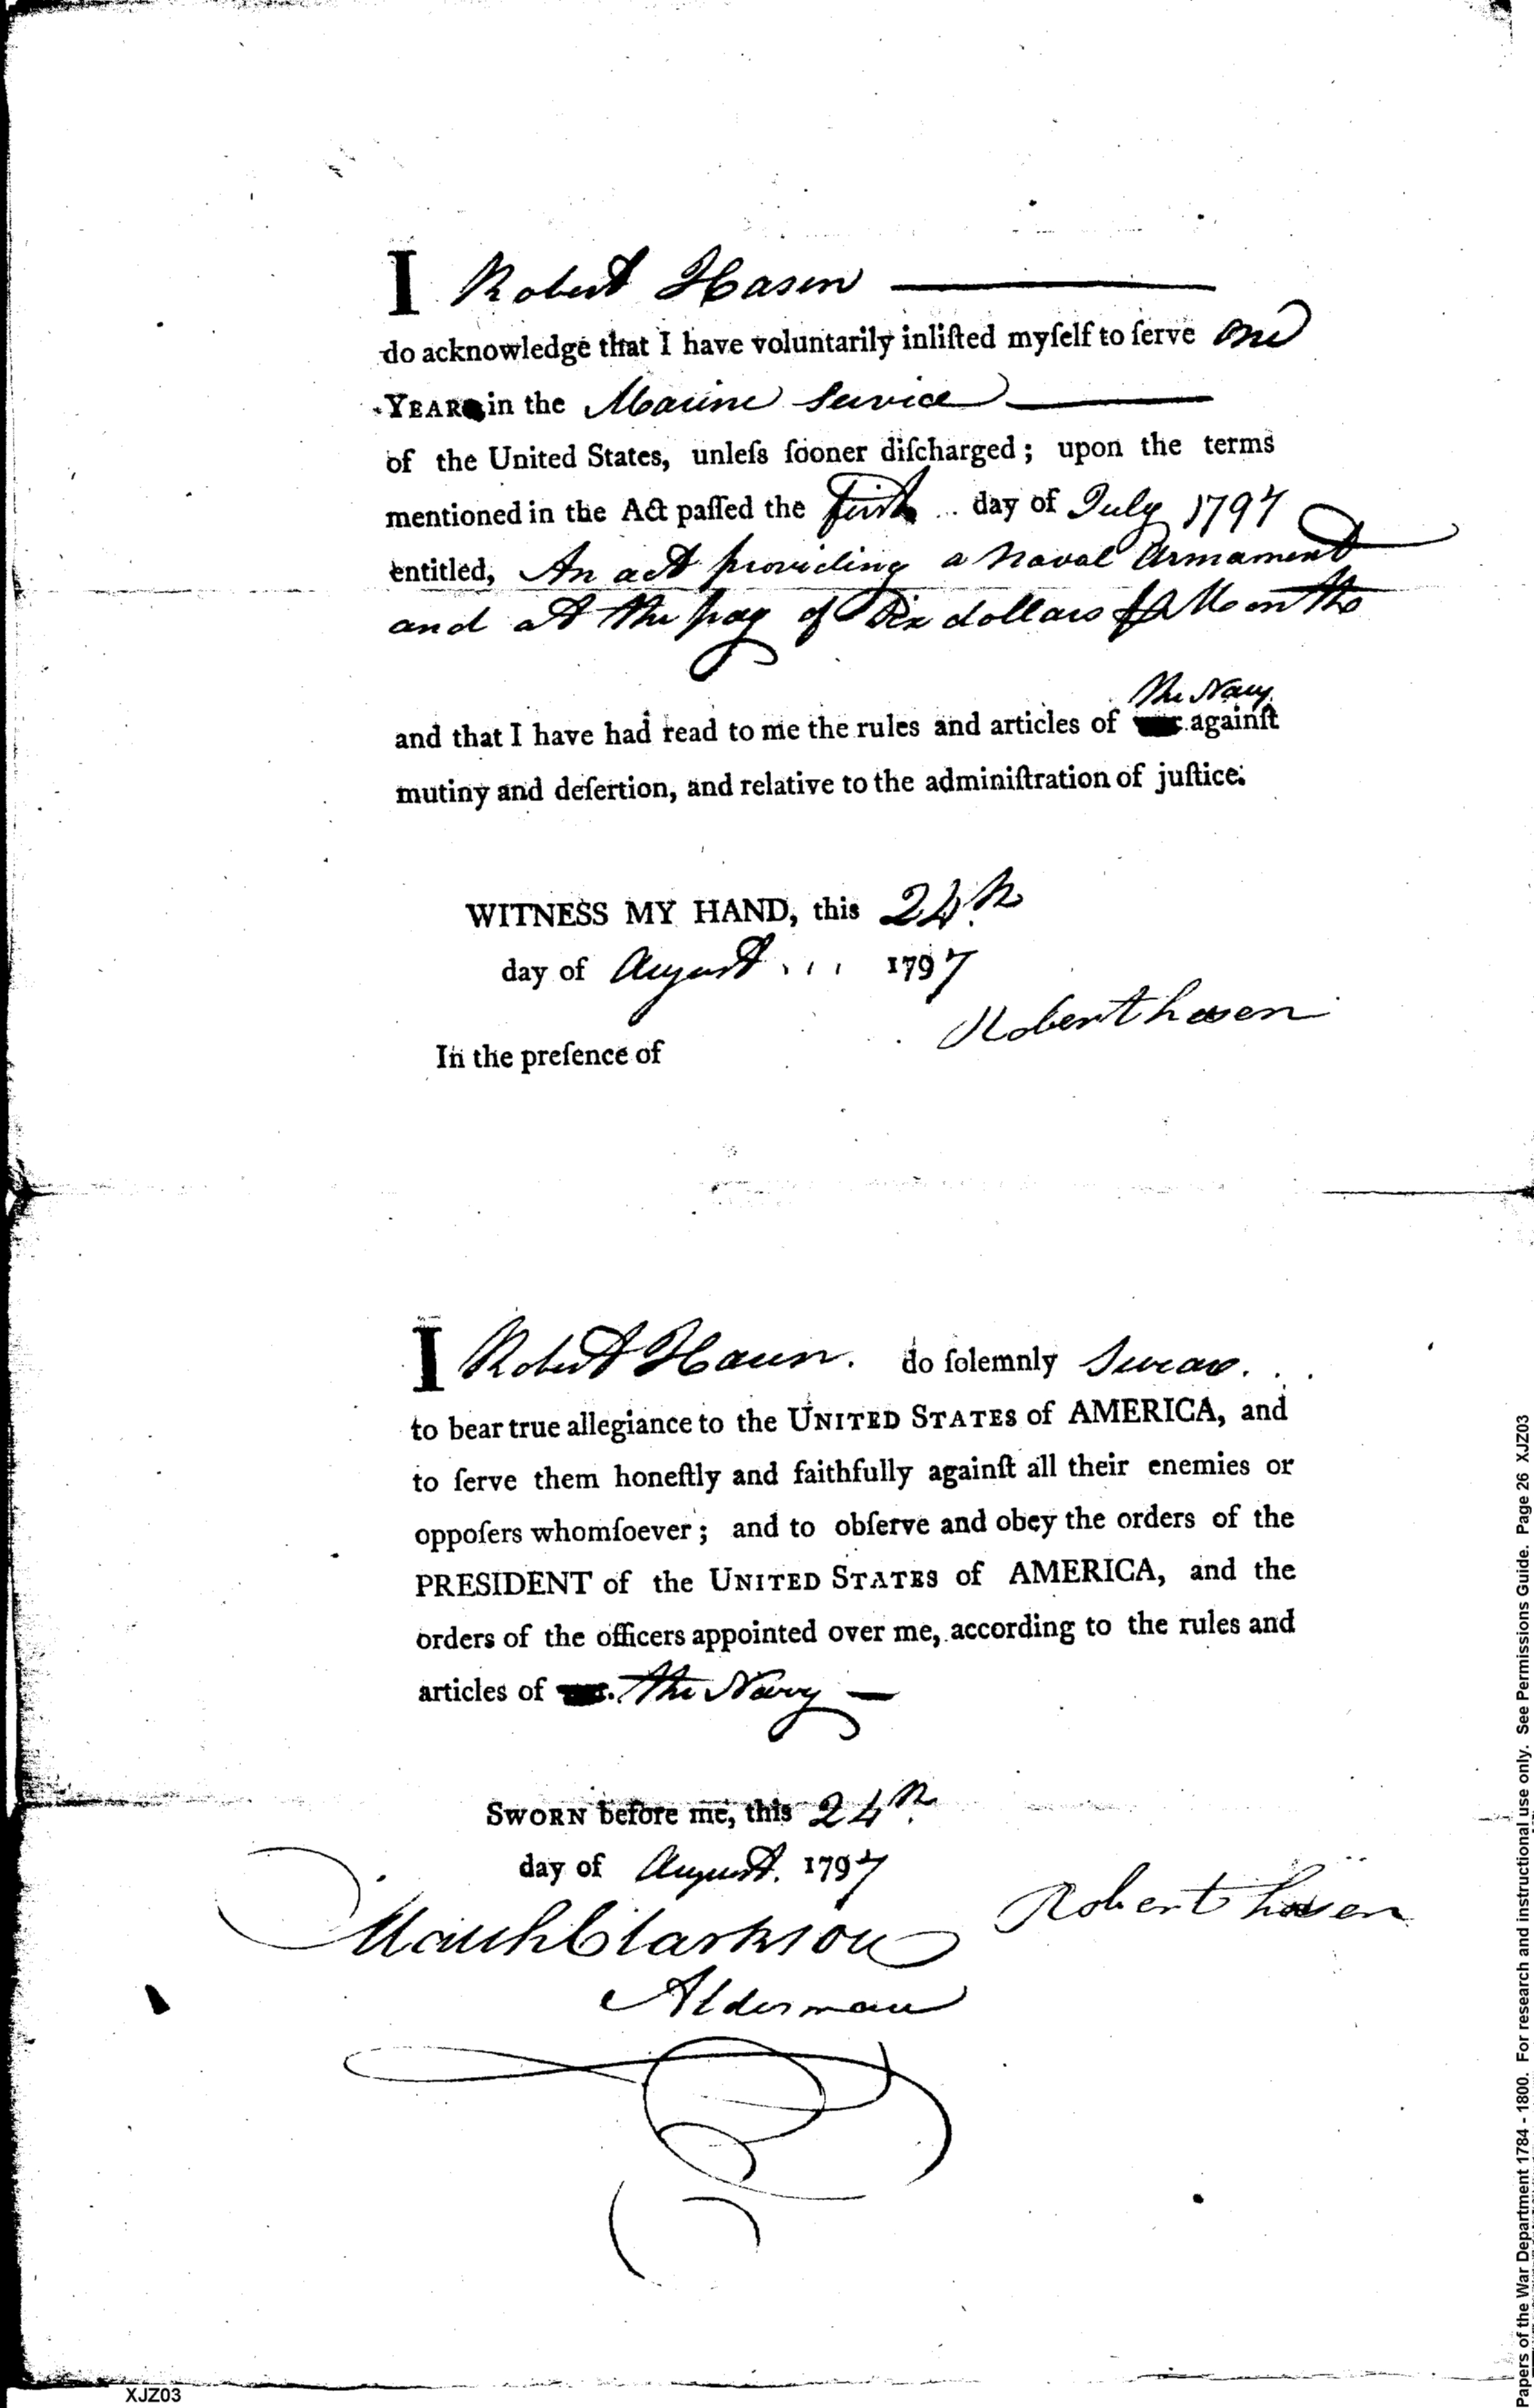 I Robert Hasen
do acknowledge that I have voluntarily inliſted myſelf to ſerve one
YEAR in the Marine Service
of the United States, unleſs ſooner diſcharged; upon the terms
mentioned in the Act paſſed the first .. day of July 1797
entitled, An act providing a Naval Armament
and at the pay of Six dollars Month
The Navy
and that I have had read to me the rules and articles of against
mutiny and deſertion, and relative to the adminiſtration of juſtice.
WITNESS MY HAND, this 24th
day of August ... 1797
Robert hasen
In the preſence of
I Robert Hasen. do ſolemnly Swear. . .
to bear true allegiance to the UNITED STATES of AMERICA, and
to ſerve them honeſtly and faithfully againſt all their enemies or
oppoſers whomſoever; and to obſerve and obey the orders of the
PRESIDENT of the UNITED STATES of AMERICA, and the
orders of the officers appointed over me, according to the rules and
articles of the Navy —
SWORN before me, this 24th
day of August. 1797
Robert hasen
Matth Clarkson
Alderman
XJZ03
Papers of the War Department 1784 - 1800. For research and instructional use only. See Permissions Guide. Page 26 XJZ03